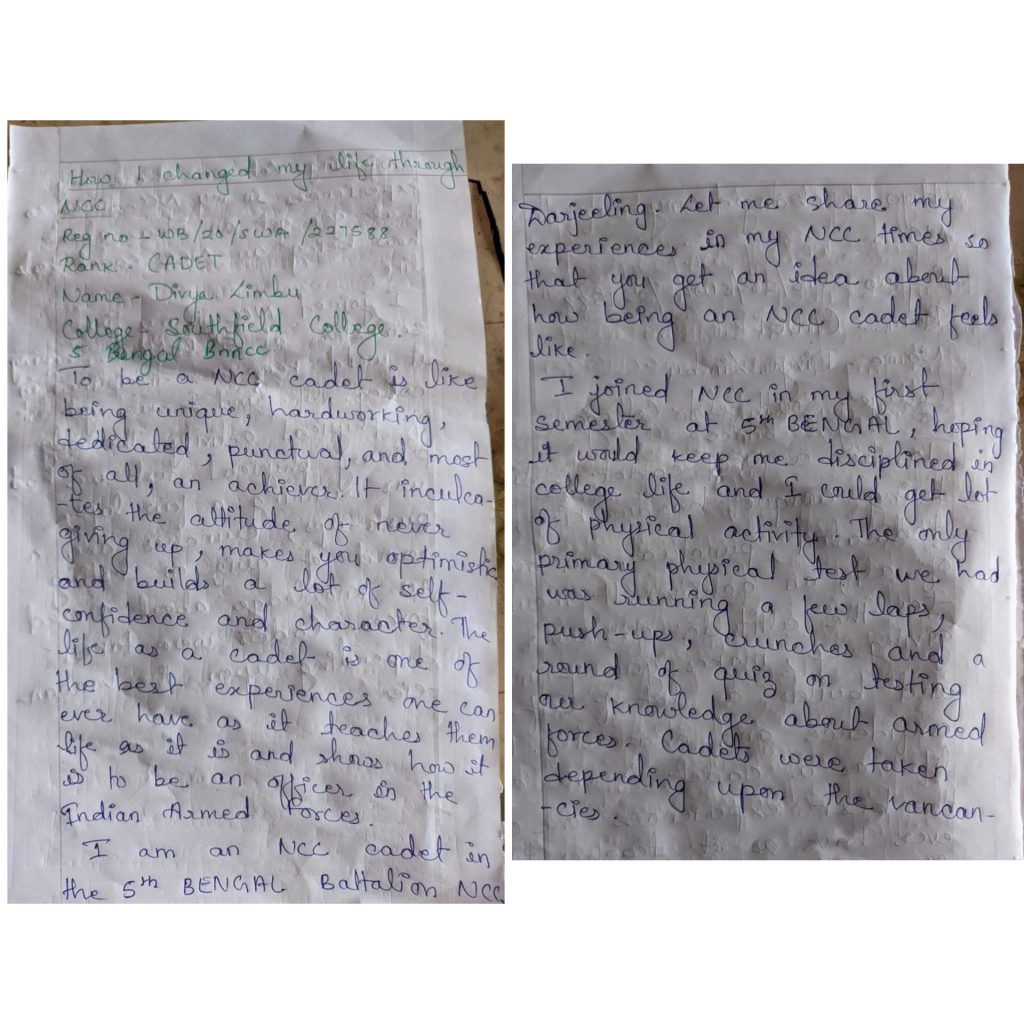 How I changed my life through
NCC.
Reg no - WB/20/SWA/227588
Rank - CADET
Name - Divya Limbu
College - Southfield College.
5 Bengal BnNCC
To be a NCC cadet is like
being unique, hardworking,
dedicated, punctual, and most
of all, an achiever. It inculca-
-tes the attitude of never
giving up, makes you optimistic
and builds a lot of self-
confidence and character. The
life as a cadet is one of
the best experiences one can
ever have as it teaches them
life as it is and shows how it
is to be an officer in the
Indian Armed Forces.
I am an NCC cadet in
the 5th BENGAL Battalion NCC
Darjeeling. Let me share my
experiences in my NCC times so
that you get an idea about
how being an NCC cadet feels
like.
I joined NCC in my first
semester at 5th BENGAL, hoping
it would keep me disciplined in
college life and I could get lot
of physical activity. The only
primary physical test we had
was running a few laps,
push-ups, crunches and a
round of quiz on testing
our knowledge about armed
forces. Cadets were taken
depending upon the vancan-
-cies.